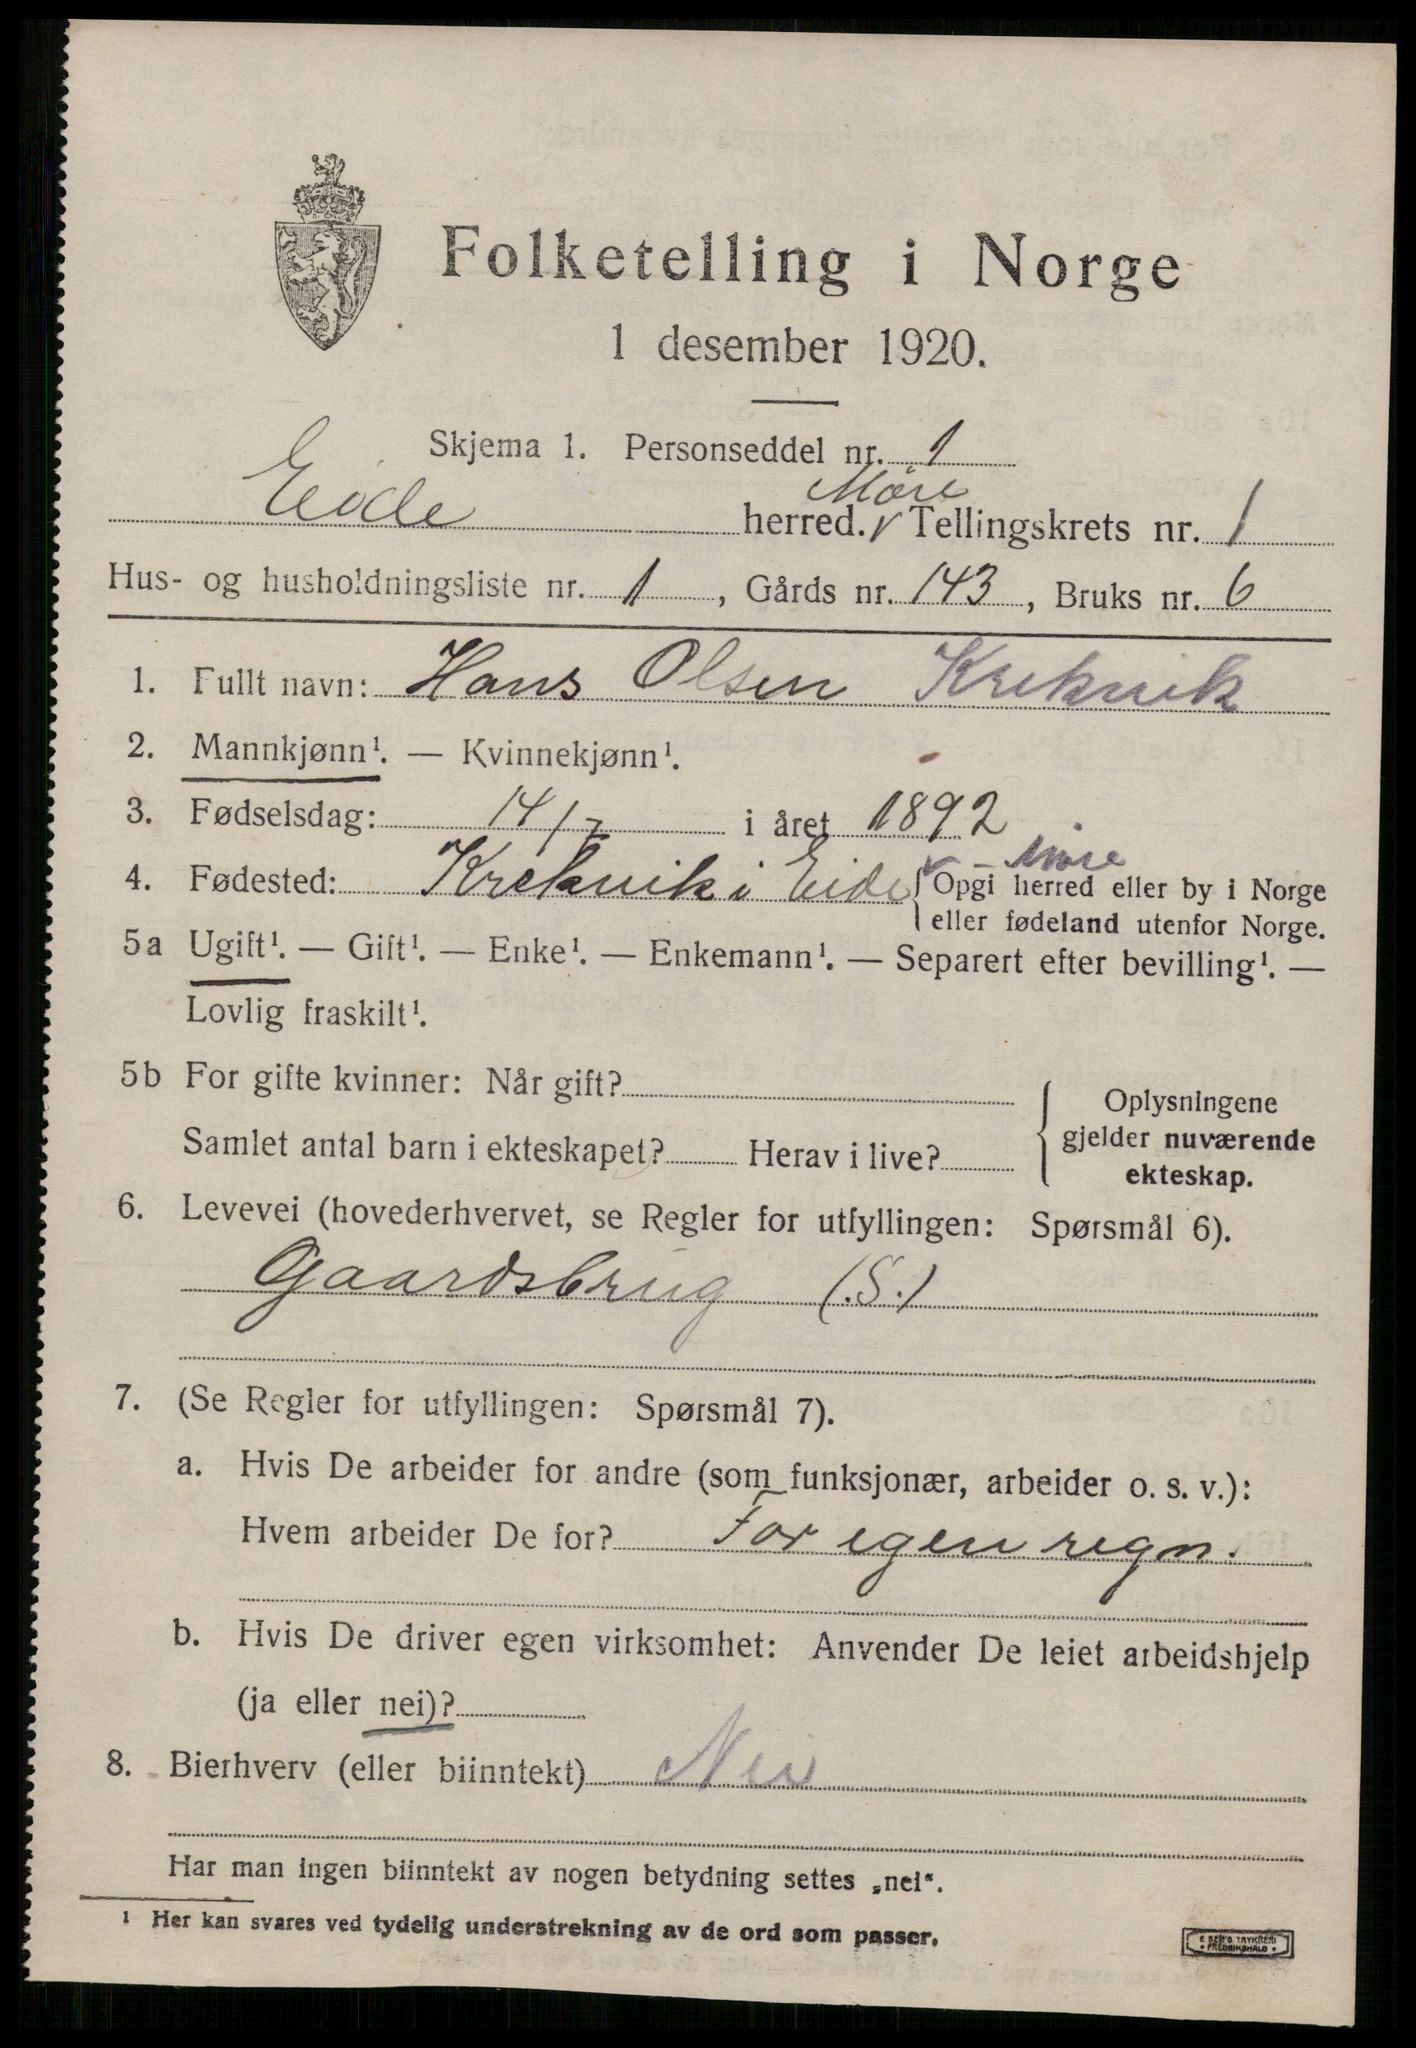 Folketelling i Norge
1 desember 1920.
Skjema 1. Personseddel nr. 1
Eide herred. Møre Tellingskrets nr. 1
Hus- og husholdningsliste nr. 1, Gårds nr. 143, Bruks nr. 6
1. Fullt navn: Hans Olsen Kreknik
2. Mannkjønn¹. — Kvinnekjønn¹.
3. Fødselsdag: 14/7 i året 1892
4. Fødested: Kreknik i Eide - Møre { Opgi herred eller by i Norge
eller fødeland utenfor Norge.
5a Ugift¹. — Gift¹. — Enke¹. — Enkemann¹. — Separert efter bevilling¹. —
Lovlig fraskilt¹.
5b For gifte kvinner: Når gift?
Samlet antal barn i ekteskapet? Herav i live?
Oplysningene
gjelder nuværende
ekteskap.
6. Levevei (hovederhvervet, se Regler for utfyllingen: Spørsmål 6).
Gaardsbrug (.S.)
7. (Se Regler for utfyllingen: Spørsmål 7).
a. Hvis De arbeider for andre (som funksjonær, arbeider o. s. v.):
Hvem arbeider De for? For egen regn.
b. Hvis De driver egen virksomhet: Anvender De leiet arbeidshjelp
(ja eller nei)?
8. Bierhverv (eller biinntekt) Nei
Har man ingen biinntekt av nogen betydning settes „nei“.
¹ Her kan svares ved tydelig understrekning av de ord som passer.
E SEM'S TRYKKERI
FREDRIKSHALD